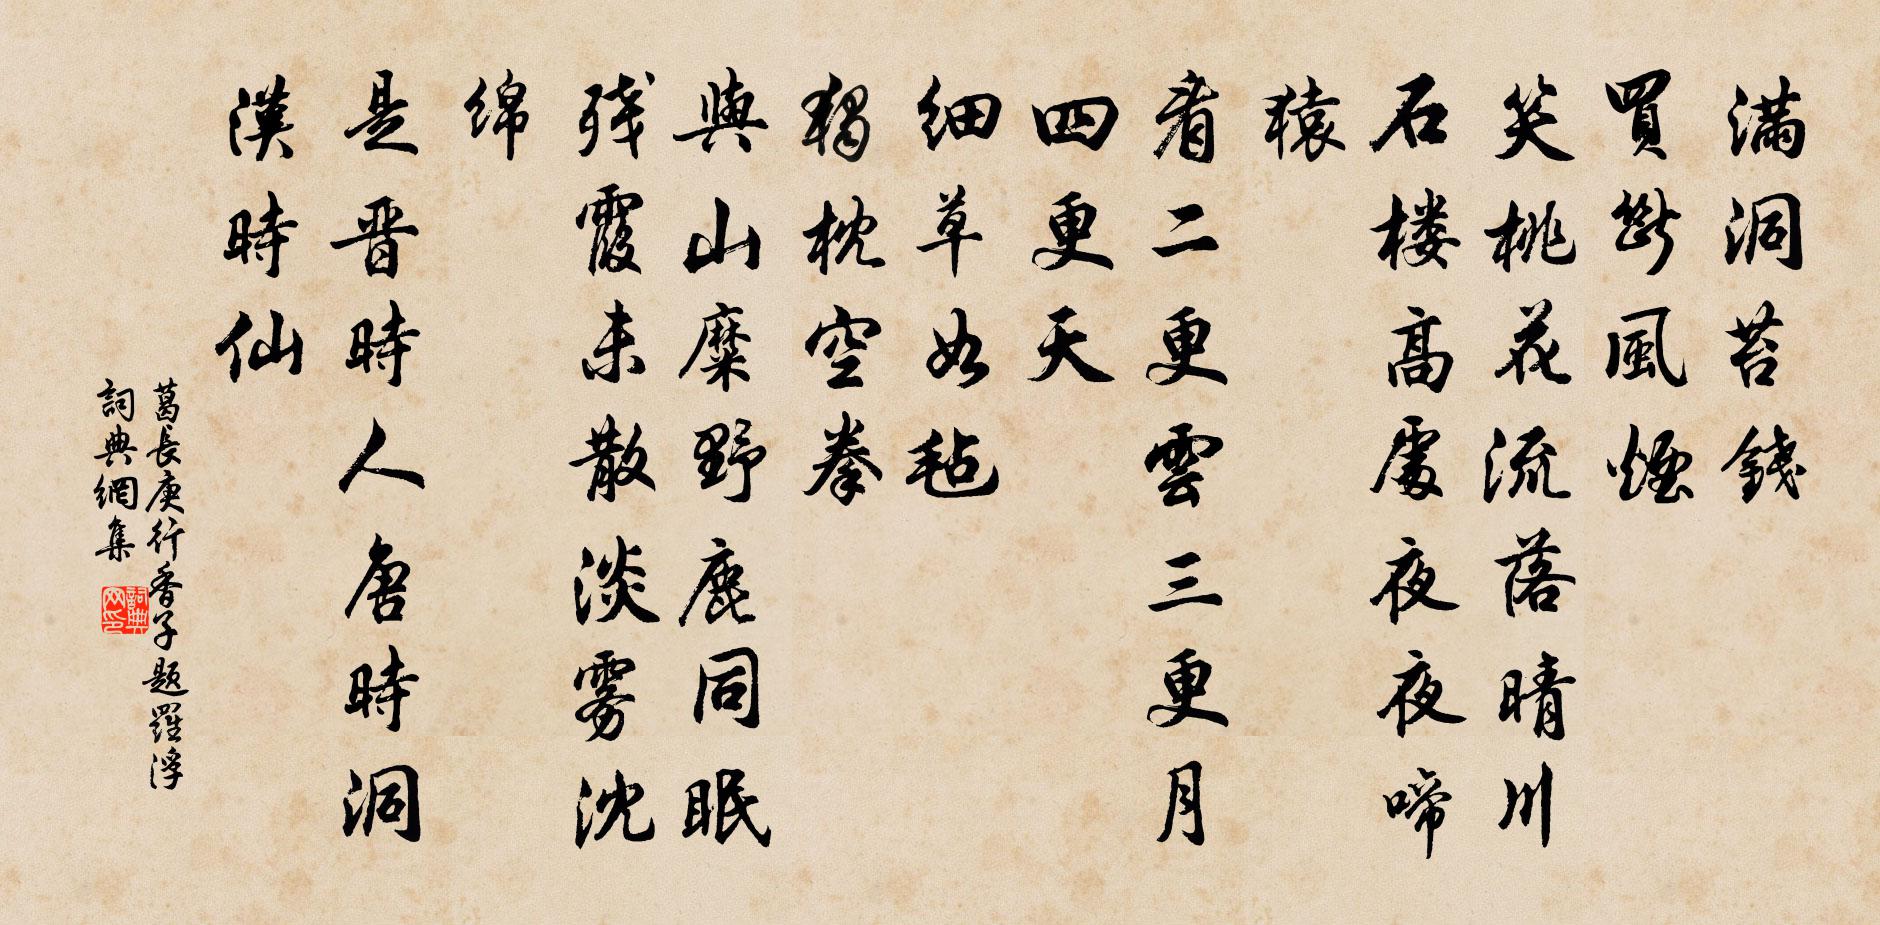 满洞苔錢
買斷風煙
笑桃花流落晴川
石楼高處夜夜啼
猿
看二更雲三更月
四更天
细草如毡
独枕空拳
與山麋野鹿同眠
残霞未散淡雾沈
绵
是晋時人唐時洞
漢時仙
葛長庚行香子題羅浮
詞典網集
詞典网印